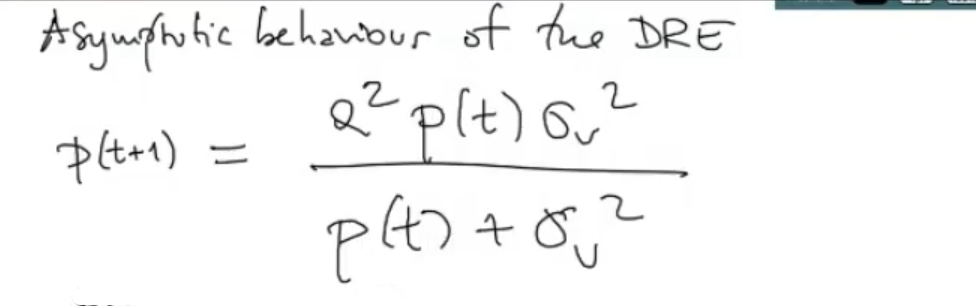 Asymptotic behaviour of the DRE
p(t+1) = a² p(t) σv² / p(t) + σv²